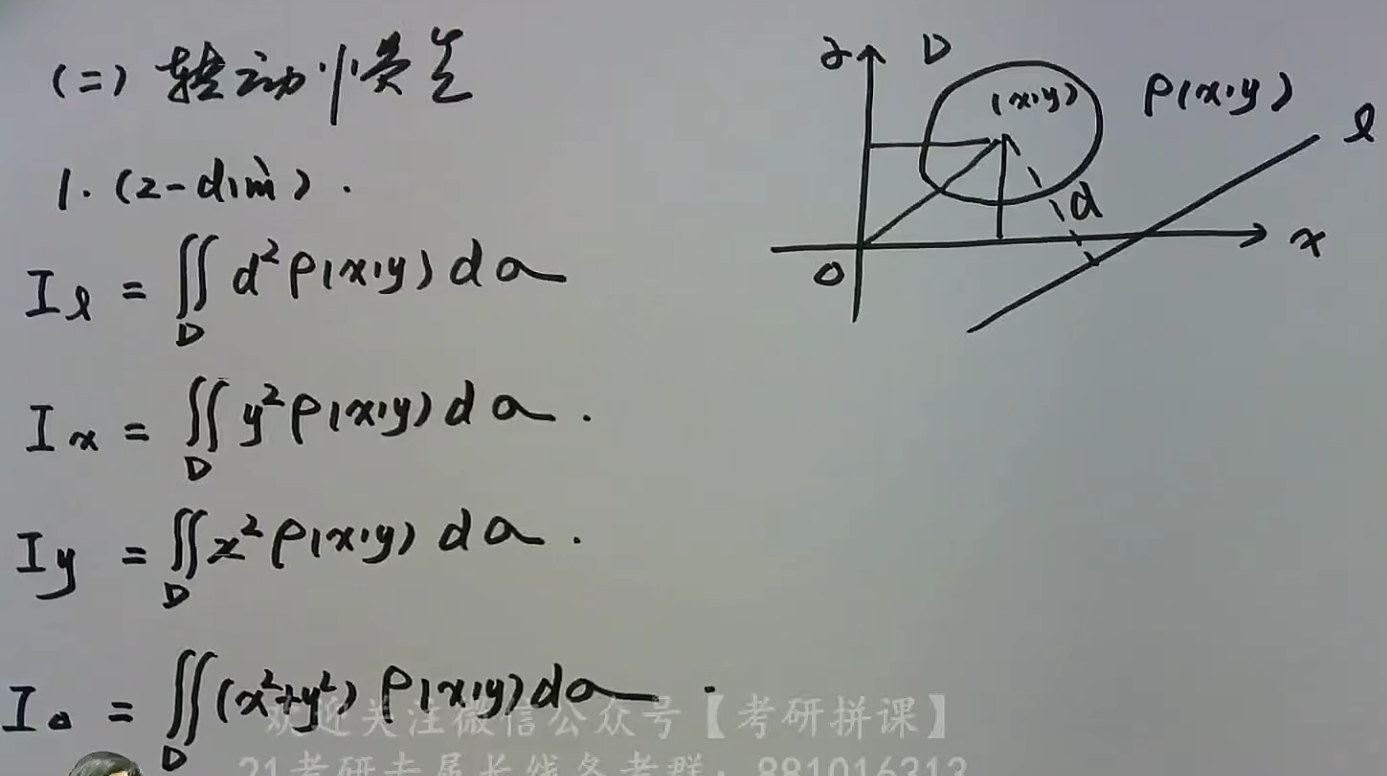 (二) 转动惯量
1. (2-dim).
I_l = ∬_D d² ρ(x,y) dσ
I_x = ∬_D y² ρ(x,y) dσ.
I_y = ∬_D x² ρ(x,y) dσ.
I_o = ∬_D (x²+y²) ρ(x,y) dσ.
y D (x,y) ρ(x,y) l
d
O x
欢迎关注微信公众号【考研拼课】
21考研专属长线备考群：881016313